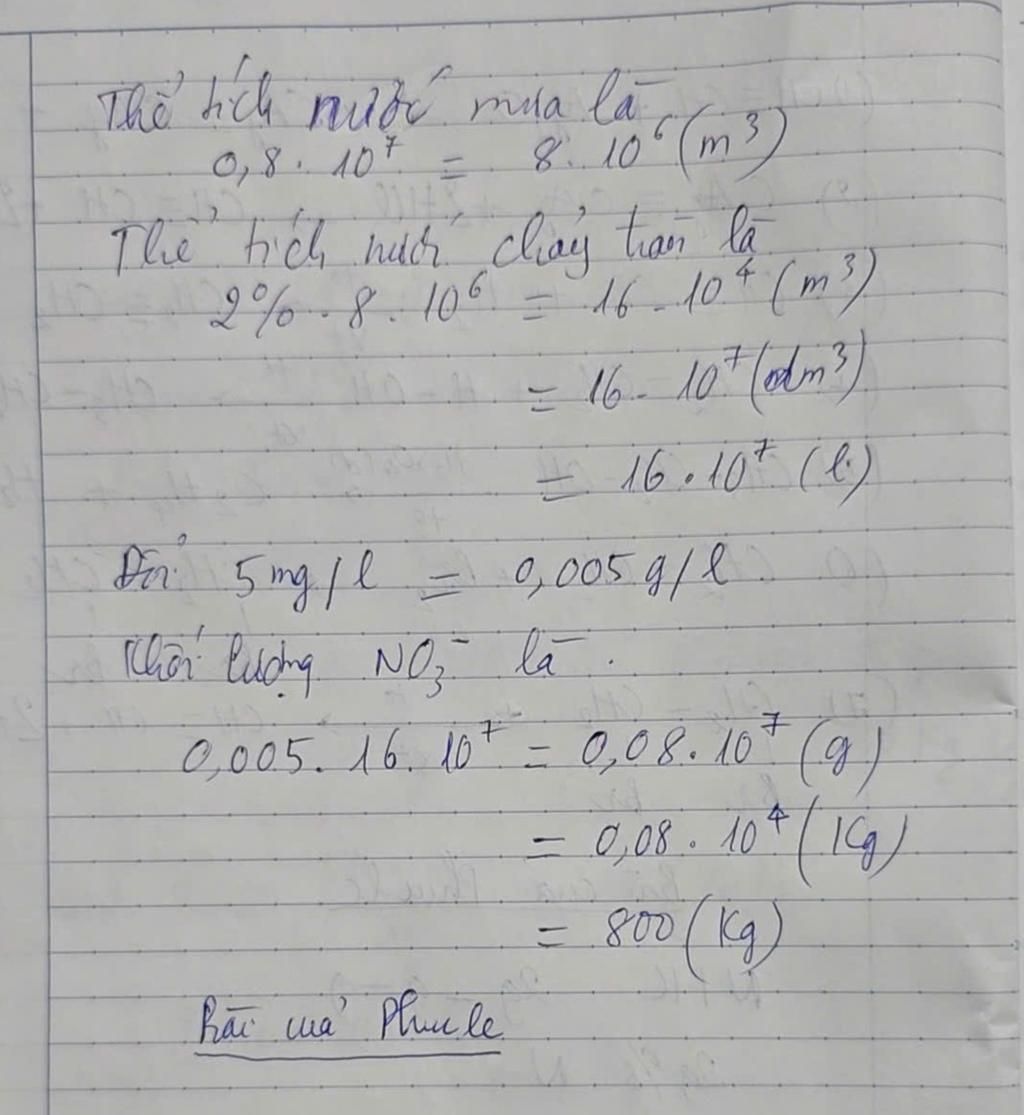 Thể tích nước mưa là
0,8 . 10⁷ = 8 . 10⁶ (m³)
Thể tích nước chảy tràn là
2% . 8 . 10⁶ = 16 . 10⁴ (m³)
= 16 . 10⁷ (dm³)
= 16 . 10⁷ (l)
Đổi 5mg/l = 0,005g/l
Khối lượng NO₃⁻ là .
0,005 . 16 . 10⁷ = 0,08 . 10⁷ (g)
= 0,08 . 10⁴ (Kg)
= 800 (Kg)
Bài của Phuc le